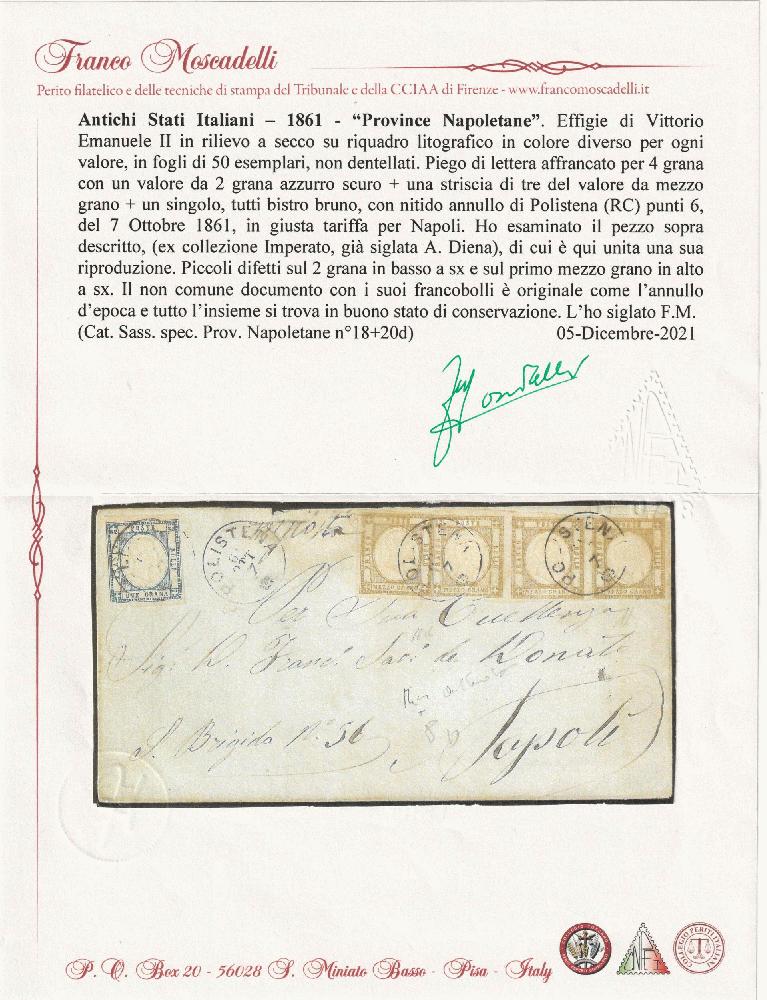 Franco Moscadelli
Perito filatelico e delle tecniche di stampa del Tribunale e della CCIAA di Firenze - www.francomoscadelli.it
Antichi Stati Italiani – 1861 - “Province Napoletane”. Effigie di Vittorio
Emanuele II in rilievo a secco su riquadro litografico in colore diverso per ogni
valore, in fogli di 50 esemplari, non dentellati. Piego di lettera affrancato per 4 grana
con un valore da 2 grana azzurro scuro + una striscia di tre del valore da mezzo
grano + un singolo, tutti bistro bruno, con nitido annullo di Polistena (RC) punti 6,
del 7 Ottobre 1861, in giusta tariffa per Napoli. Ho esaminato il pezzo sopra
descritto, (ex collezione Imperato, già siglata A. Diena), di cui è qui unita una sua
riproduzione. Piccoli difetti sul 2 grana in basso a sx e sul primo mezzo grano in alto
a sx. Il non comune documento con i suoi francobolli è originale come l’annullo
d’epoca e tutto l’insieme si trova in buono stato di conservazione. L’ho siglato F.M.
(Cat. Sass. spec. Prov. Napoletane n°18+20d) 05-Dicembre-2021
POSTA
DUE GRANA
POLISTENA
MEZZO GRANO
Per Sua Eccellenza
S. Brigida N. 56
Napoli
P. O. Box 20 - 56028 S. Miniato Basso - Pisa - Italy
COLLEGIO PERITI ITALIANI